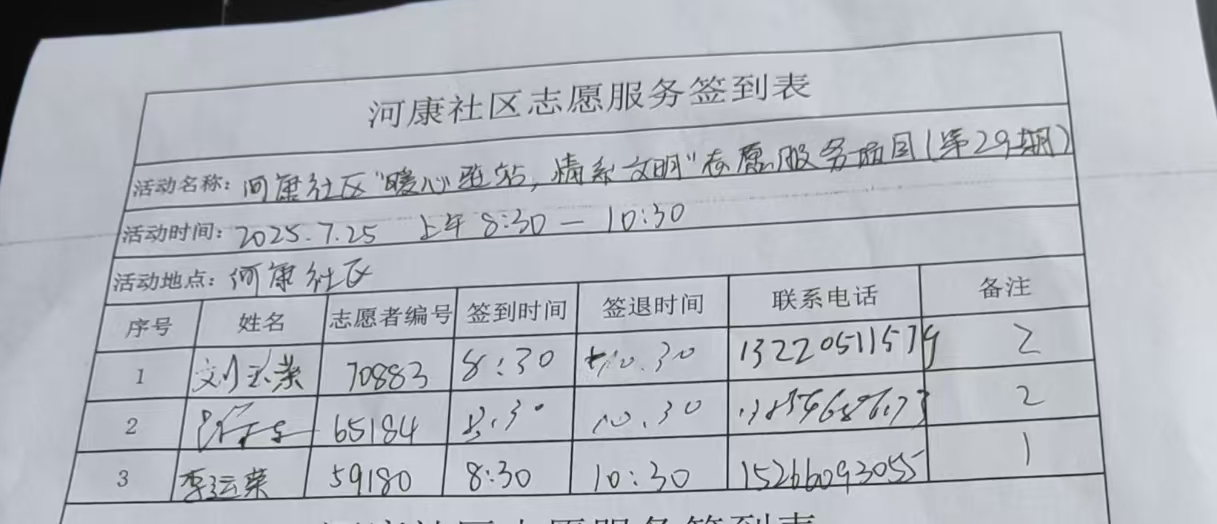 河康社区志愿服务签到表
活动名称：河康社区"暖心驿站，情系文明"志愿服务项目（第29期）
活动时间：2025.7.25 上午 8:30 — 10:30
活动地点：河康社区
序号 姓名 志愿者编号 签到时间 签退时间 联系电话 备注
1 刘玉荣 70883 8:30 10.30 13220511579 2
2 65184 8.30 10.30 2
3 李运荣 59180 8:30 10:30 15266093055 1
河康社区志愿服务签到表